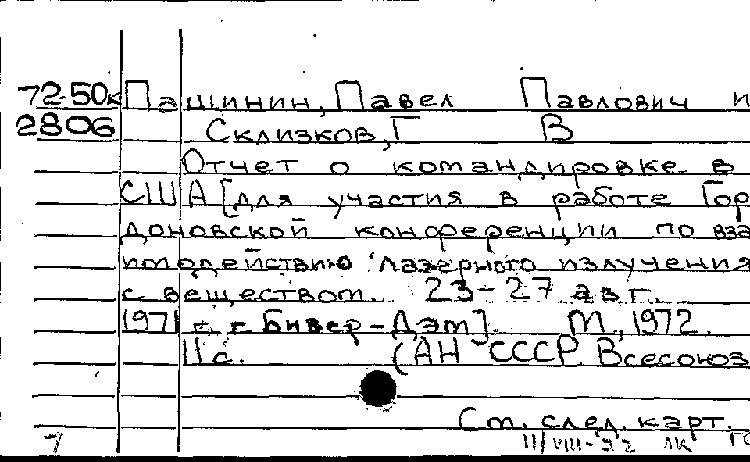 72-50к Пашинин, Павел Павлович и
2806 Склизков, Г В
Отчет о командировке в
США [для участия в работе Гор
доновской конференции по вза
имодействию лазерного излучения
с веществом. 23-27 авг.
1971 г. г. Бивер-Дэм]. М., 1972.
11 с. (АН СССР. Всесоюз
См. след. карт.
7 11/VIII-72 ЛК